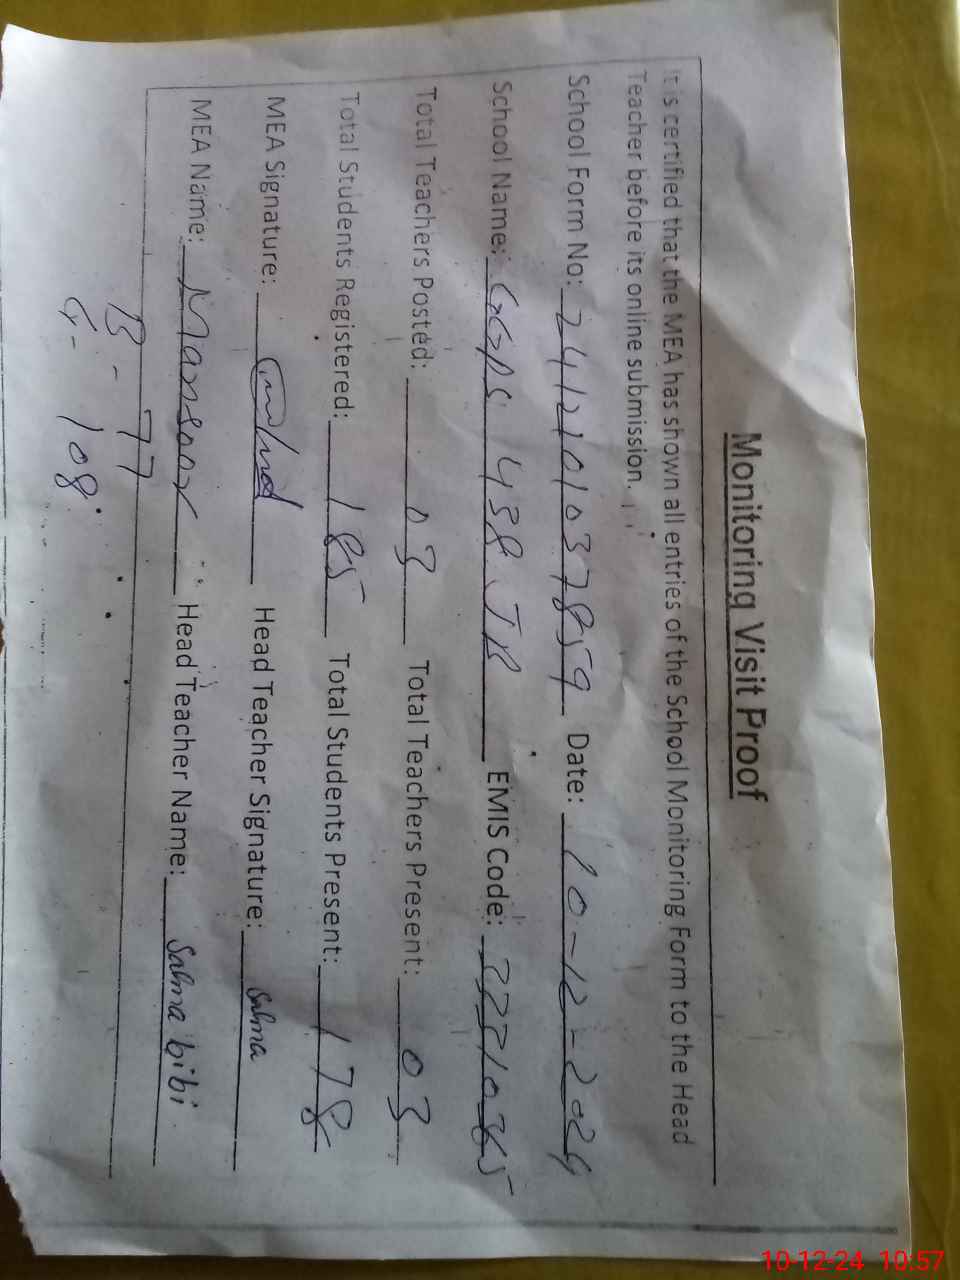 Monitoring Visit Proof
It is certified that the MEA has shown all entries of the School Monitoring Form to the Head
Teacher before its online submission.
School Form No: 2412101037859 Date: 10-12-2024
School Name: GGPS 438 JB EMIS Code:
Total Teachers Posted: 03 Total Teachers Present: 03
Total Students Registered: 185 Total Students Present: 178
MEA Signature: Head Teacher Signature: Salma
MEA Name: Mansoor Head Teacher Name: Salma bibi
B - 77
G - 108
10-12-24 10:57